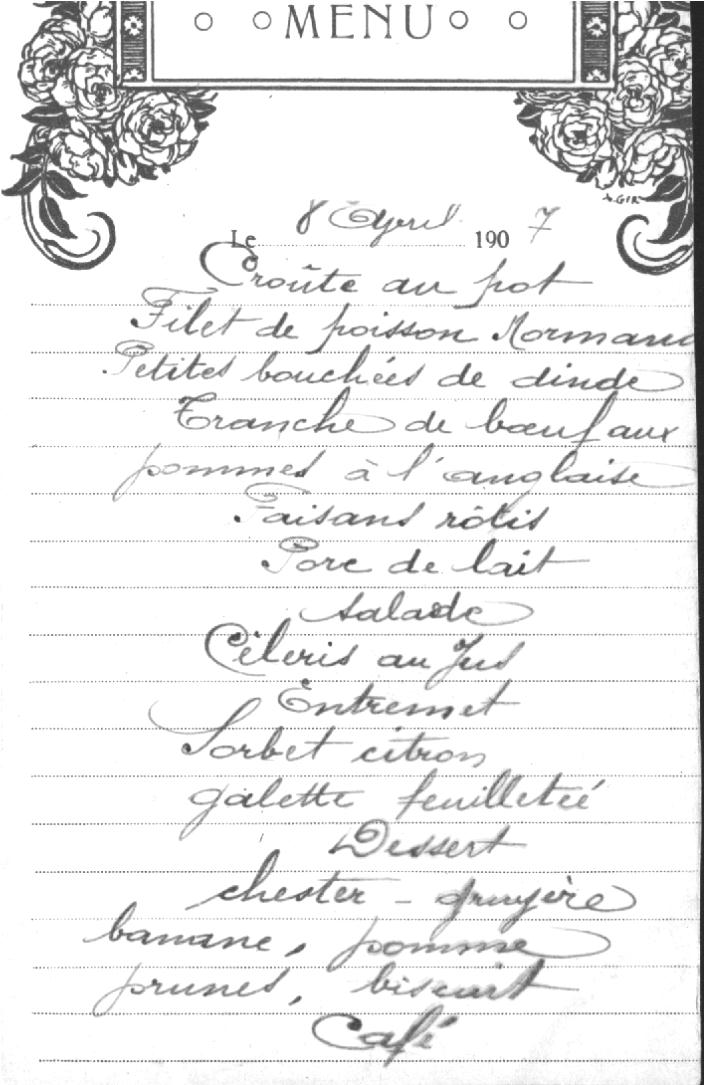 MENU
Le 8 Avril 1907
Croûte au pot
Filet de poisson Normand
Petites bouchées de dinde
Tranche de bœuf aux
pommes à l'anglaise
Faisans rôtis
Porc de lait
salade
Céleris au Jus
Entremet
Sorbet citron
galette feuilleteé
Dessert
chester - gruyère
banane, pomme
prunes, biscuit
Café